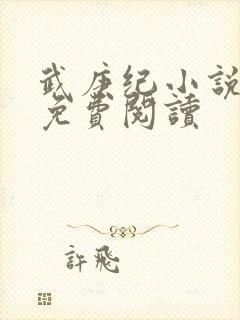 武庚纪小説
免費閱讀
許飛